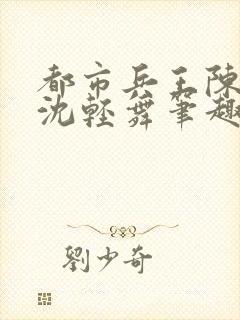 都市兵王陳
沈輕舞筆趣
劉少奇